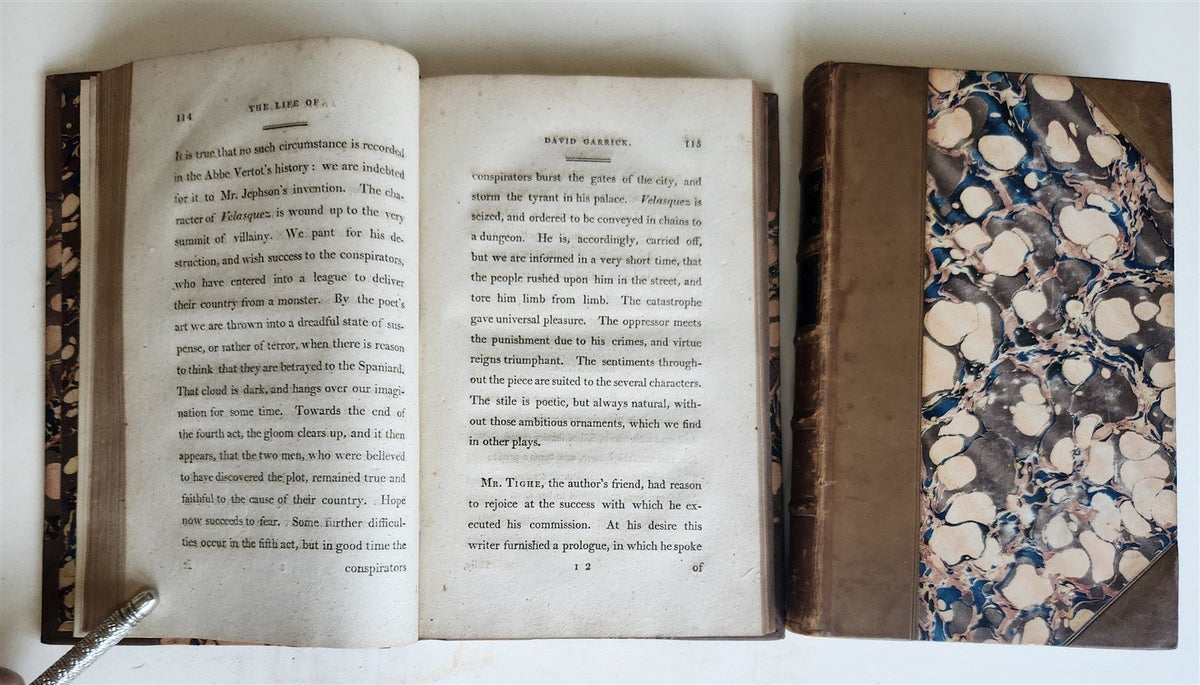 114
THE LIFE OF
It is true that no such circumstance is recorded
in the Abbe Vertot's history: we are indebted
for it to Mr. Jephson's invention. The cha-
racter of Velasquez is wound up to the very
summit of villainy. We pant for his de-
struction, and wish success to the conspirators,
who have entered into a league to deliver
their country from a monster. By the poet's
art we are thrown into a dreadful state of sus-
pense, or rather of terror, when there is reason
to think that they are betrayed to the Spaniard.
That cloud is dark, and hangs over our imagi-
nation for some time. Towards the end of
the fourth act, the gloom clears up, and it then
appears, that the two men, who were believed
to have discovered the plot, remained true and
faithful to the cause of their country. Hope
now succeeds to fear. Some further difficul-
ties occur in the fifth act, but in good time the
conspirators
DAVID GARRICK.
115
conspirators burst the gates of the city, and
storm the tyrant in his palace. Velasquez is
seized, and ordered to be conveyed in chains to
a dungeon. He is, accordingly, carried off,
but we are informed in a very short time, that
the people rushed upon him in the street, and
tore him limb from limb. The catastrophe
gave universal pleasure. The oppressor meets
the punishment due to his crimes, and virtue
reigns triumphant. The sentiments through-
out the piece are suited to the several characters.
The stile is poetic, but always natural, with-
out those ambitious ornaments, which we find
in other plays.
MR. TIGHE, the author's friend, had reason
to rejoice at the success with which he ex-
ecuted his commission. At his desire this
writer furnished a prologue, in which he spoke
I 2
of